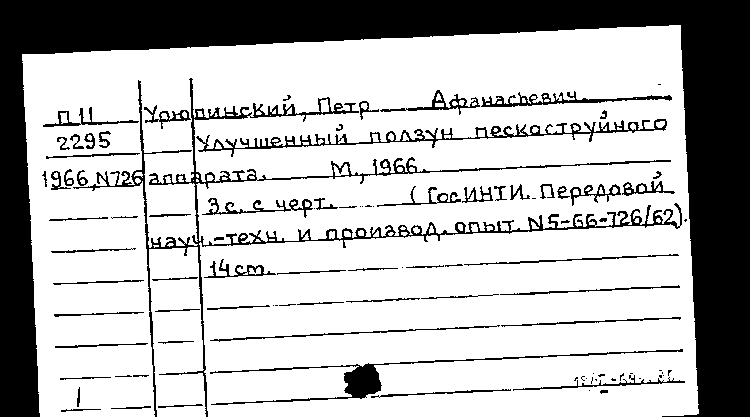 П 11 Урюпинский, Петр Афанасьевич
2295 Улучшенный ползун пескоструйного
1966, N726 аппарата. М., 1966.
3с. с черт. (ГосИНТИ. Передовой
науч.-техн. и производ. опыт. N5-66-726/62).
14 cm.
1